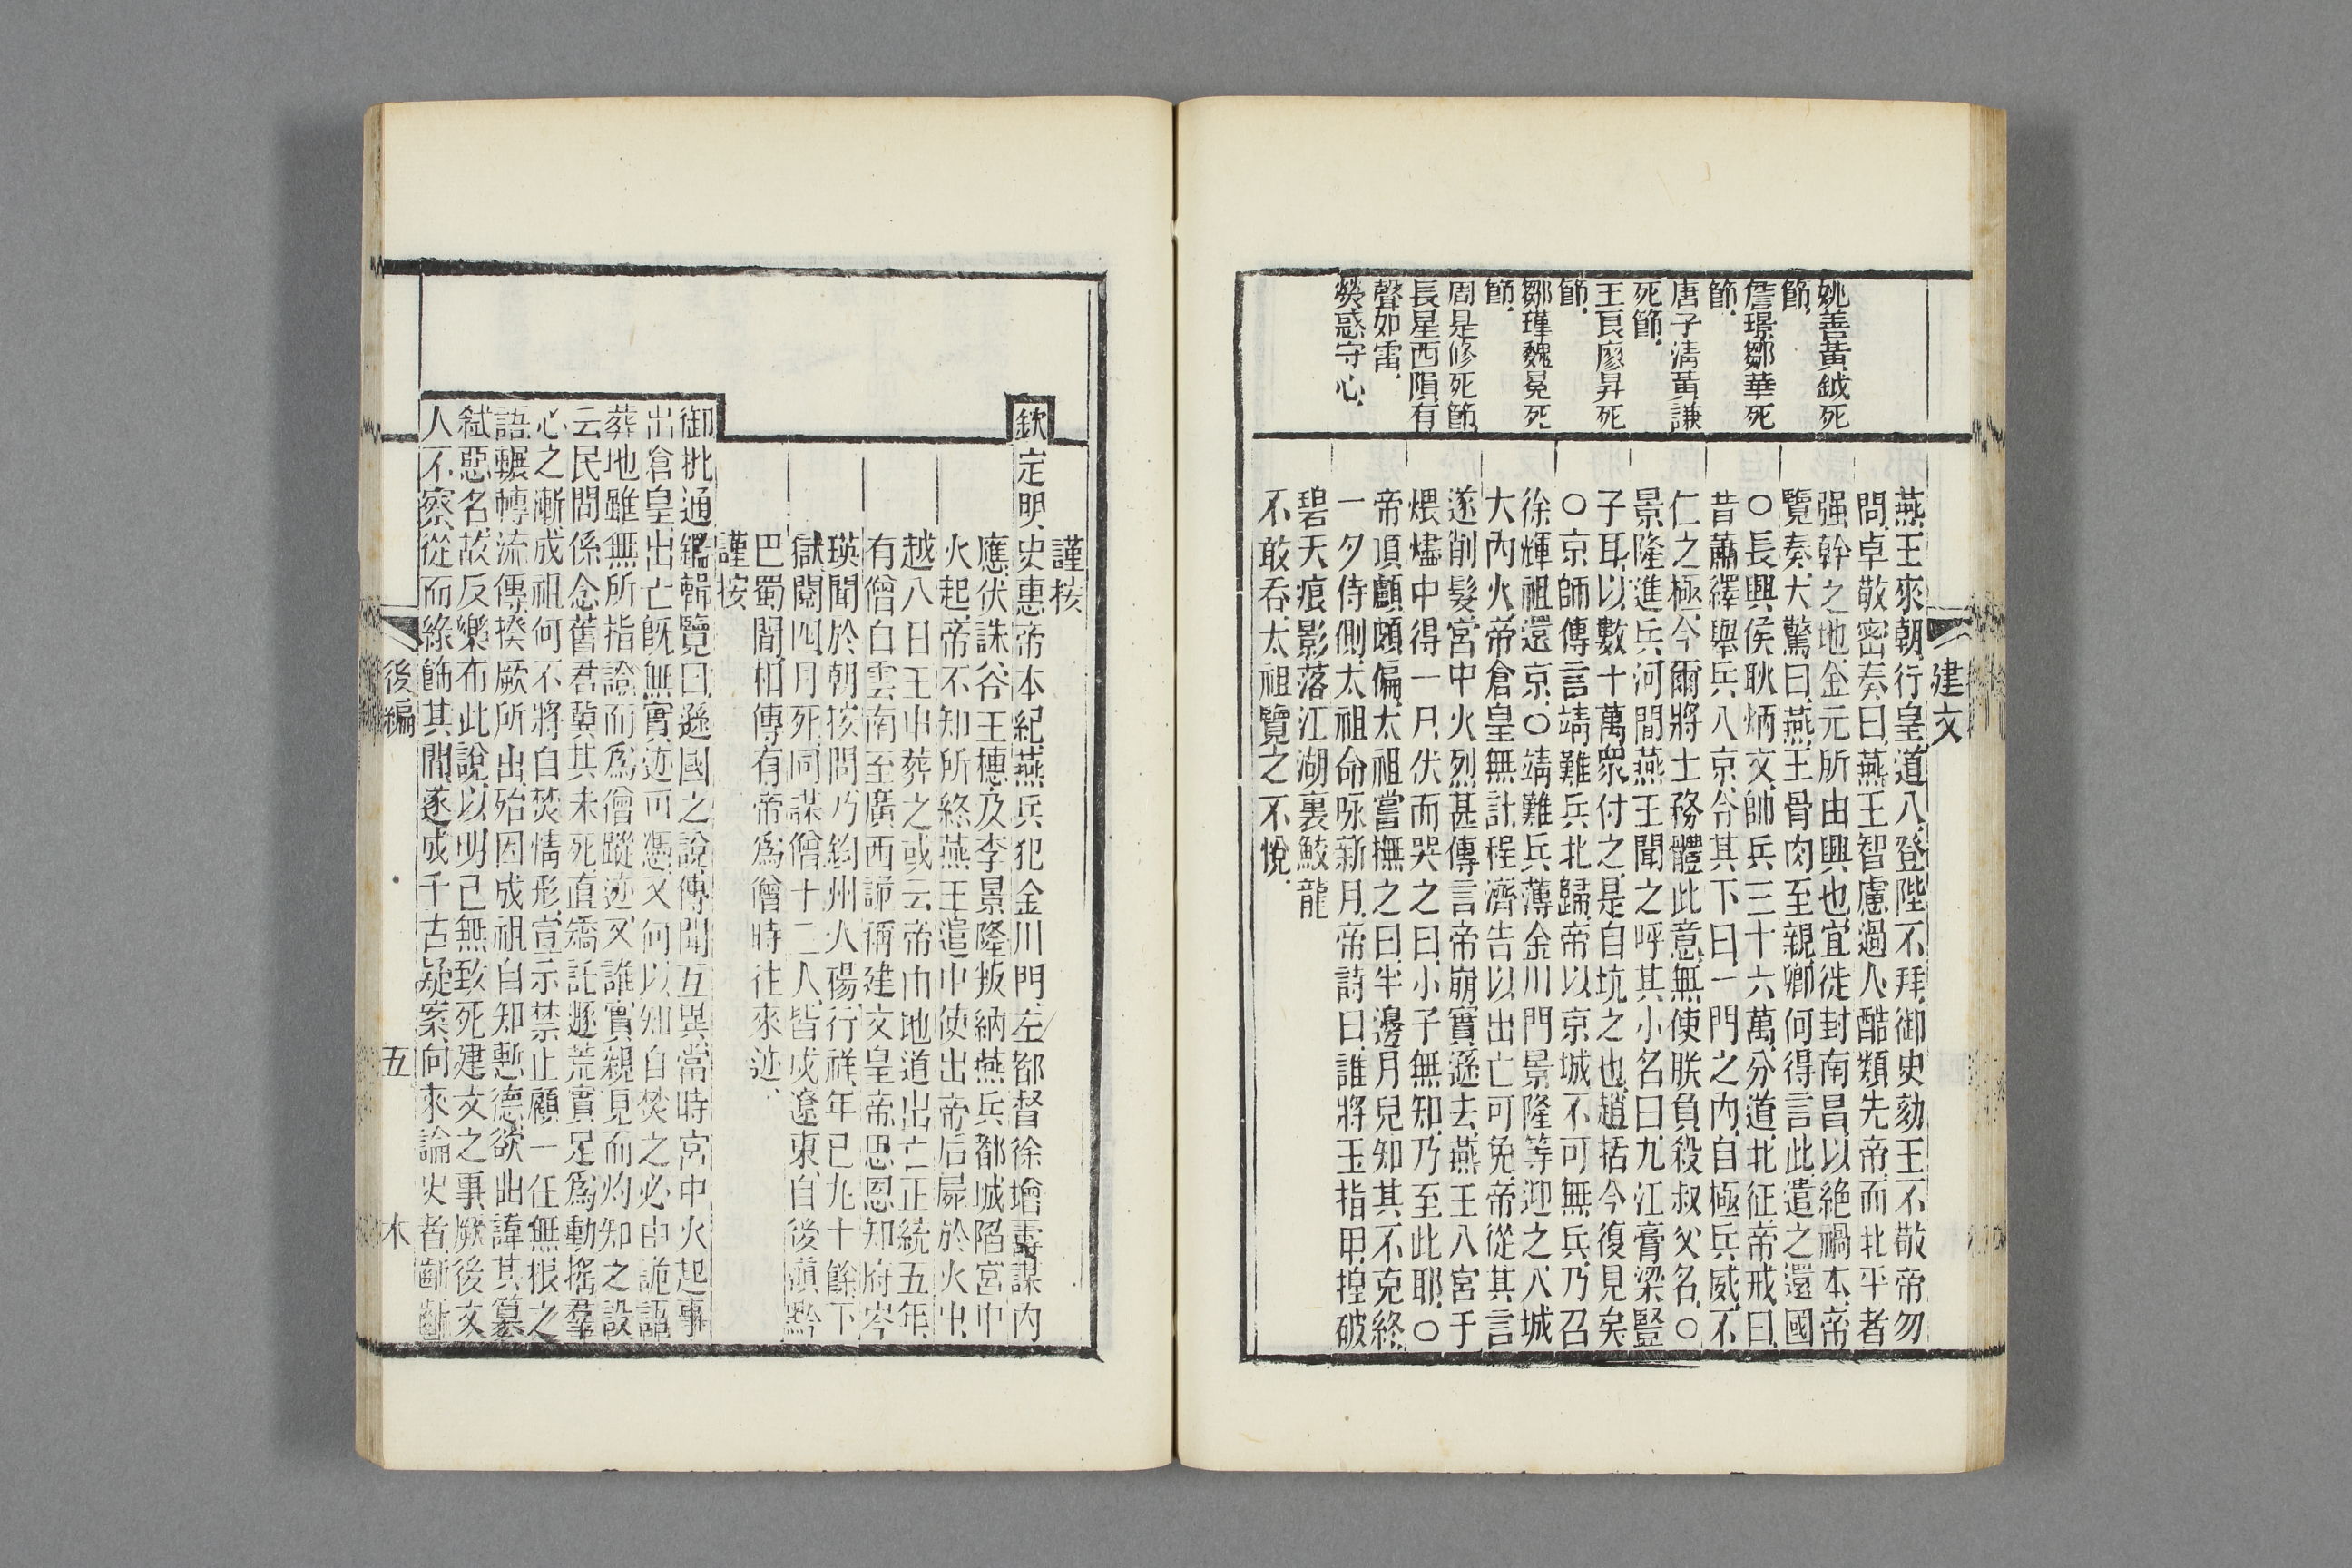 建文
姚善黃鉞死
節.
詹璟鄒華死
節.
唐子淸黃謙
死節.
王艮廖昇死
節.
鄒瑾魏冕死
節.
周是修死節.
長星西隕有
聲如雷.
熒惑守心.
燕王來朝.行皇道入.登陛不拜.御史劾王不敬.帝勿
問.卓敬密奏曰.燕王智慮過人.酷類先帝.而北平者
强幹之地.金元所由興也.宜徙封南昌.以絕禍本.帝
覽奏.大驚曰.燕王骨肉至親.卿何得言此.遣之還國
○長興侯耿炳文.帥兵三十六萬.分道北征.帝戒曰.
昔蕭繹舉兵入京.令其下曰.一門之內.自極兵威.不
仁之極.今爾將士.務體此意.無使朕負殺叔父名.○
景隆進兵河間.燕王聞之.呼其小名曰.九江膏梁豎
子耳.以數十萬衆付之.是自坑之也.趙括今復見矣
○京師傳言靖難兵北歸.帝以京城不可無兵.乃召
徐輝祖還京.○靖難兵薄金川門.景隆等迎之入城
大內火.帝倉皇無計.程濟告以出亡可免.帝從其言
遂削髮.宮中火烈甚.傳言帝崩.實遜去.燕王入宮.于
煨燼中得一尸.伏而哭之曰.小子無知.乃至此耶.○
帝頂顱頗偏.太祖嘗撫之曰.半邊月兒.知其不克終.
一夕侍側.太祖命咏新月.帝詩曰.誰將玉指甲.搯破
碧天痕.影落江湖裏.鮫龍
不敢吞.太祖覽之不悅.
謹按
欽定明史惠帝本紀.燕兵犯金川門.左都督徐增壽謀內
應伏誅.谷王橞.及李景隆叛.納燕兵.都城陷.宮中
火起.帝不知所終.燕王遣中使出帝后屍於火中.
越八日壬申葬之.或云帝由地道出亡.正統五年.
有僧自雲南至廣西.諦稱建文皇帝.思恩知府岑
瑛聞於朝.按問乃鈞州人楊行祥.年已九十餘.下
獄.閱四月死.同謀僧十二人.皆戍遼東.自後滇黔
巴蜀間.相傳有帝爲僧時往來迹.
謹按
御批通鑑輯覽曰.遜國之說.傳聞互異.當時宮中火起.事
出倉皇.出亡旣無實迹可憑.又何以知自焚之必由詭語
葬地雖無所指證.而爲僧蹤迹.又誰實親見而灼知之.設
云民間係念舊君.冀其未死.直矯託遯荒.實足爲動搖羣
心之漸.成祖何不將自焚情形.宣示禁止.顧一任無根之
語.輾轉流傳.揆厥所出.殆因成祖自知慙德.欲出諱其篡
弑惡名.故反樂布此說.以明己無致死建文之事.厥後文
人不察.從而緣飾其間.遂成千古疑案.向來論史者.齗齗
後編
五
木